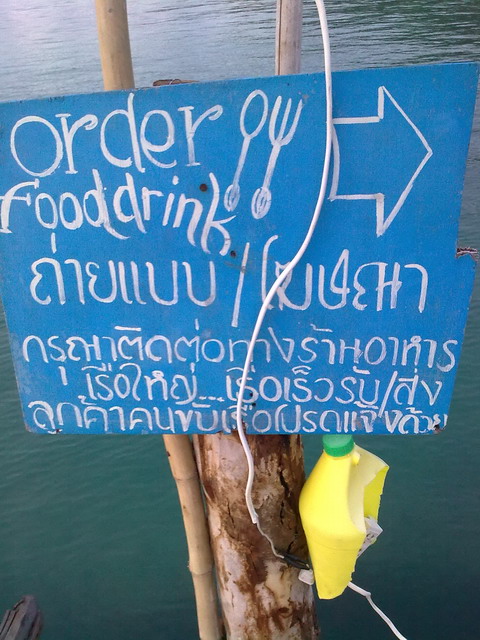 order
food drink
ถ่ายแบบ / โฆษณา
กรุณาติดต่อทางร้านอาหาร
เรือใหญ่...เรือเร็วรับ/ส่ง
ลูกค้าคนขับเรือโปรดแจ้งด้วย